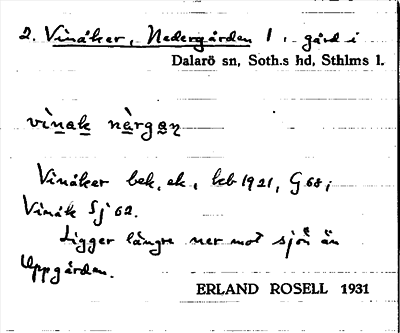 2. Vinåker, Nedergården 1, gård i
Dalarö sn, Soth.s hd, Sthlms l.
vìnak nèrgan
Vinåker bek, ek, kb 1921, G 68;
Vinåk Sj 62.
Ligger längre ner mot sjön än
Uppgården.
ERLAND ROSELL 1931